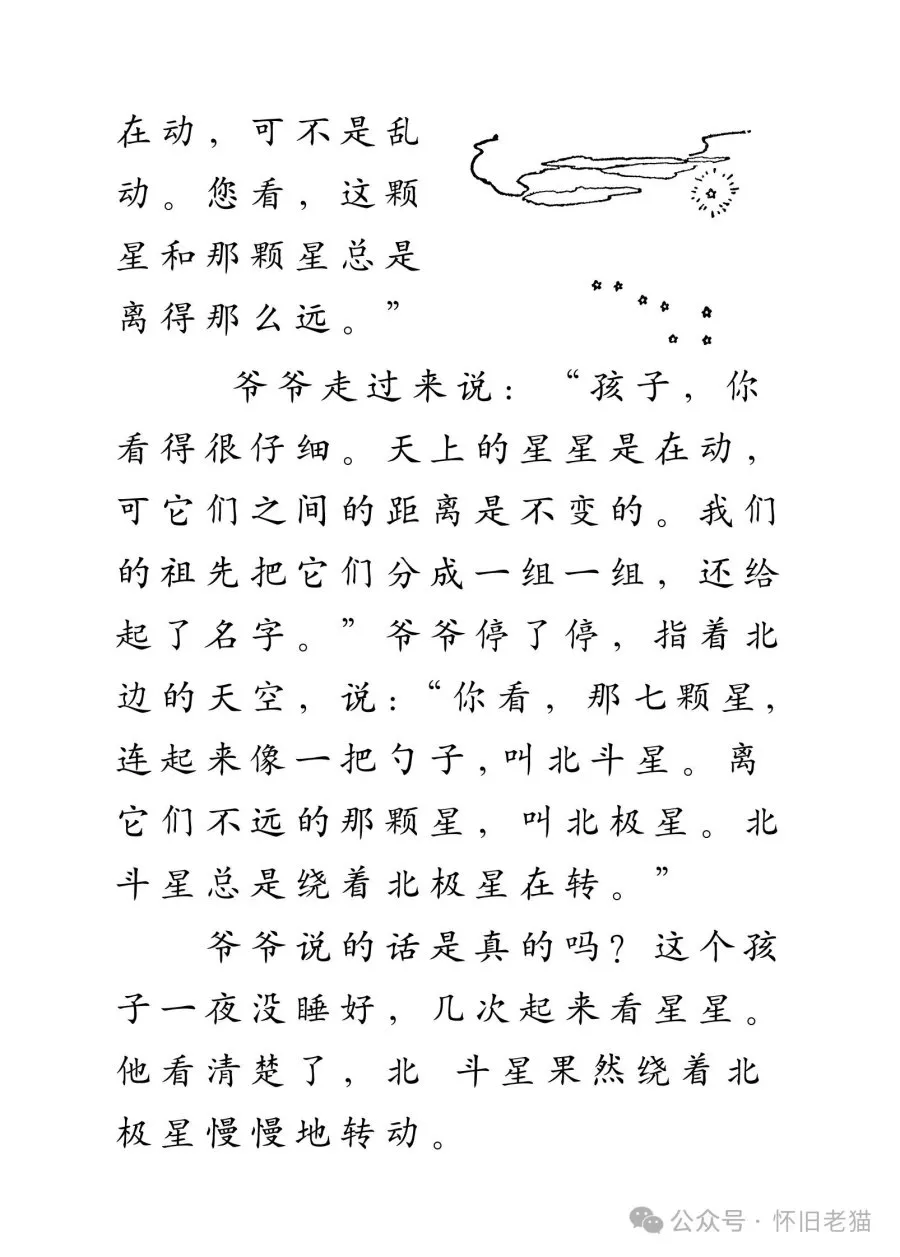 在动，可不是乱
动。您看，这颗
星和那颗星总是
离得那么远。”
爷爷走过来说：“孩子，你
看得很仔细。天上的星星是在动，
可它们之间的距离是不变的。我们
的祖先把它们分成一组一组，还给
起了名字。”爷爷停了停，指着北
边的天空，说：“你看，那七颗星，
连起来像一把勺子，叫北斗星。离
它们不远的那颗星，叫北极星。北
斗星总是绕着北极星在转。”
爷爷说的话是真的吗？这个孩
子一夜没睡好，几次起来看星星。
他看清楚了，北 斗星果然绕着北
极星慢慢地转动。
公众号·怀旧老猫